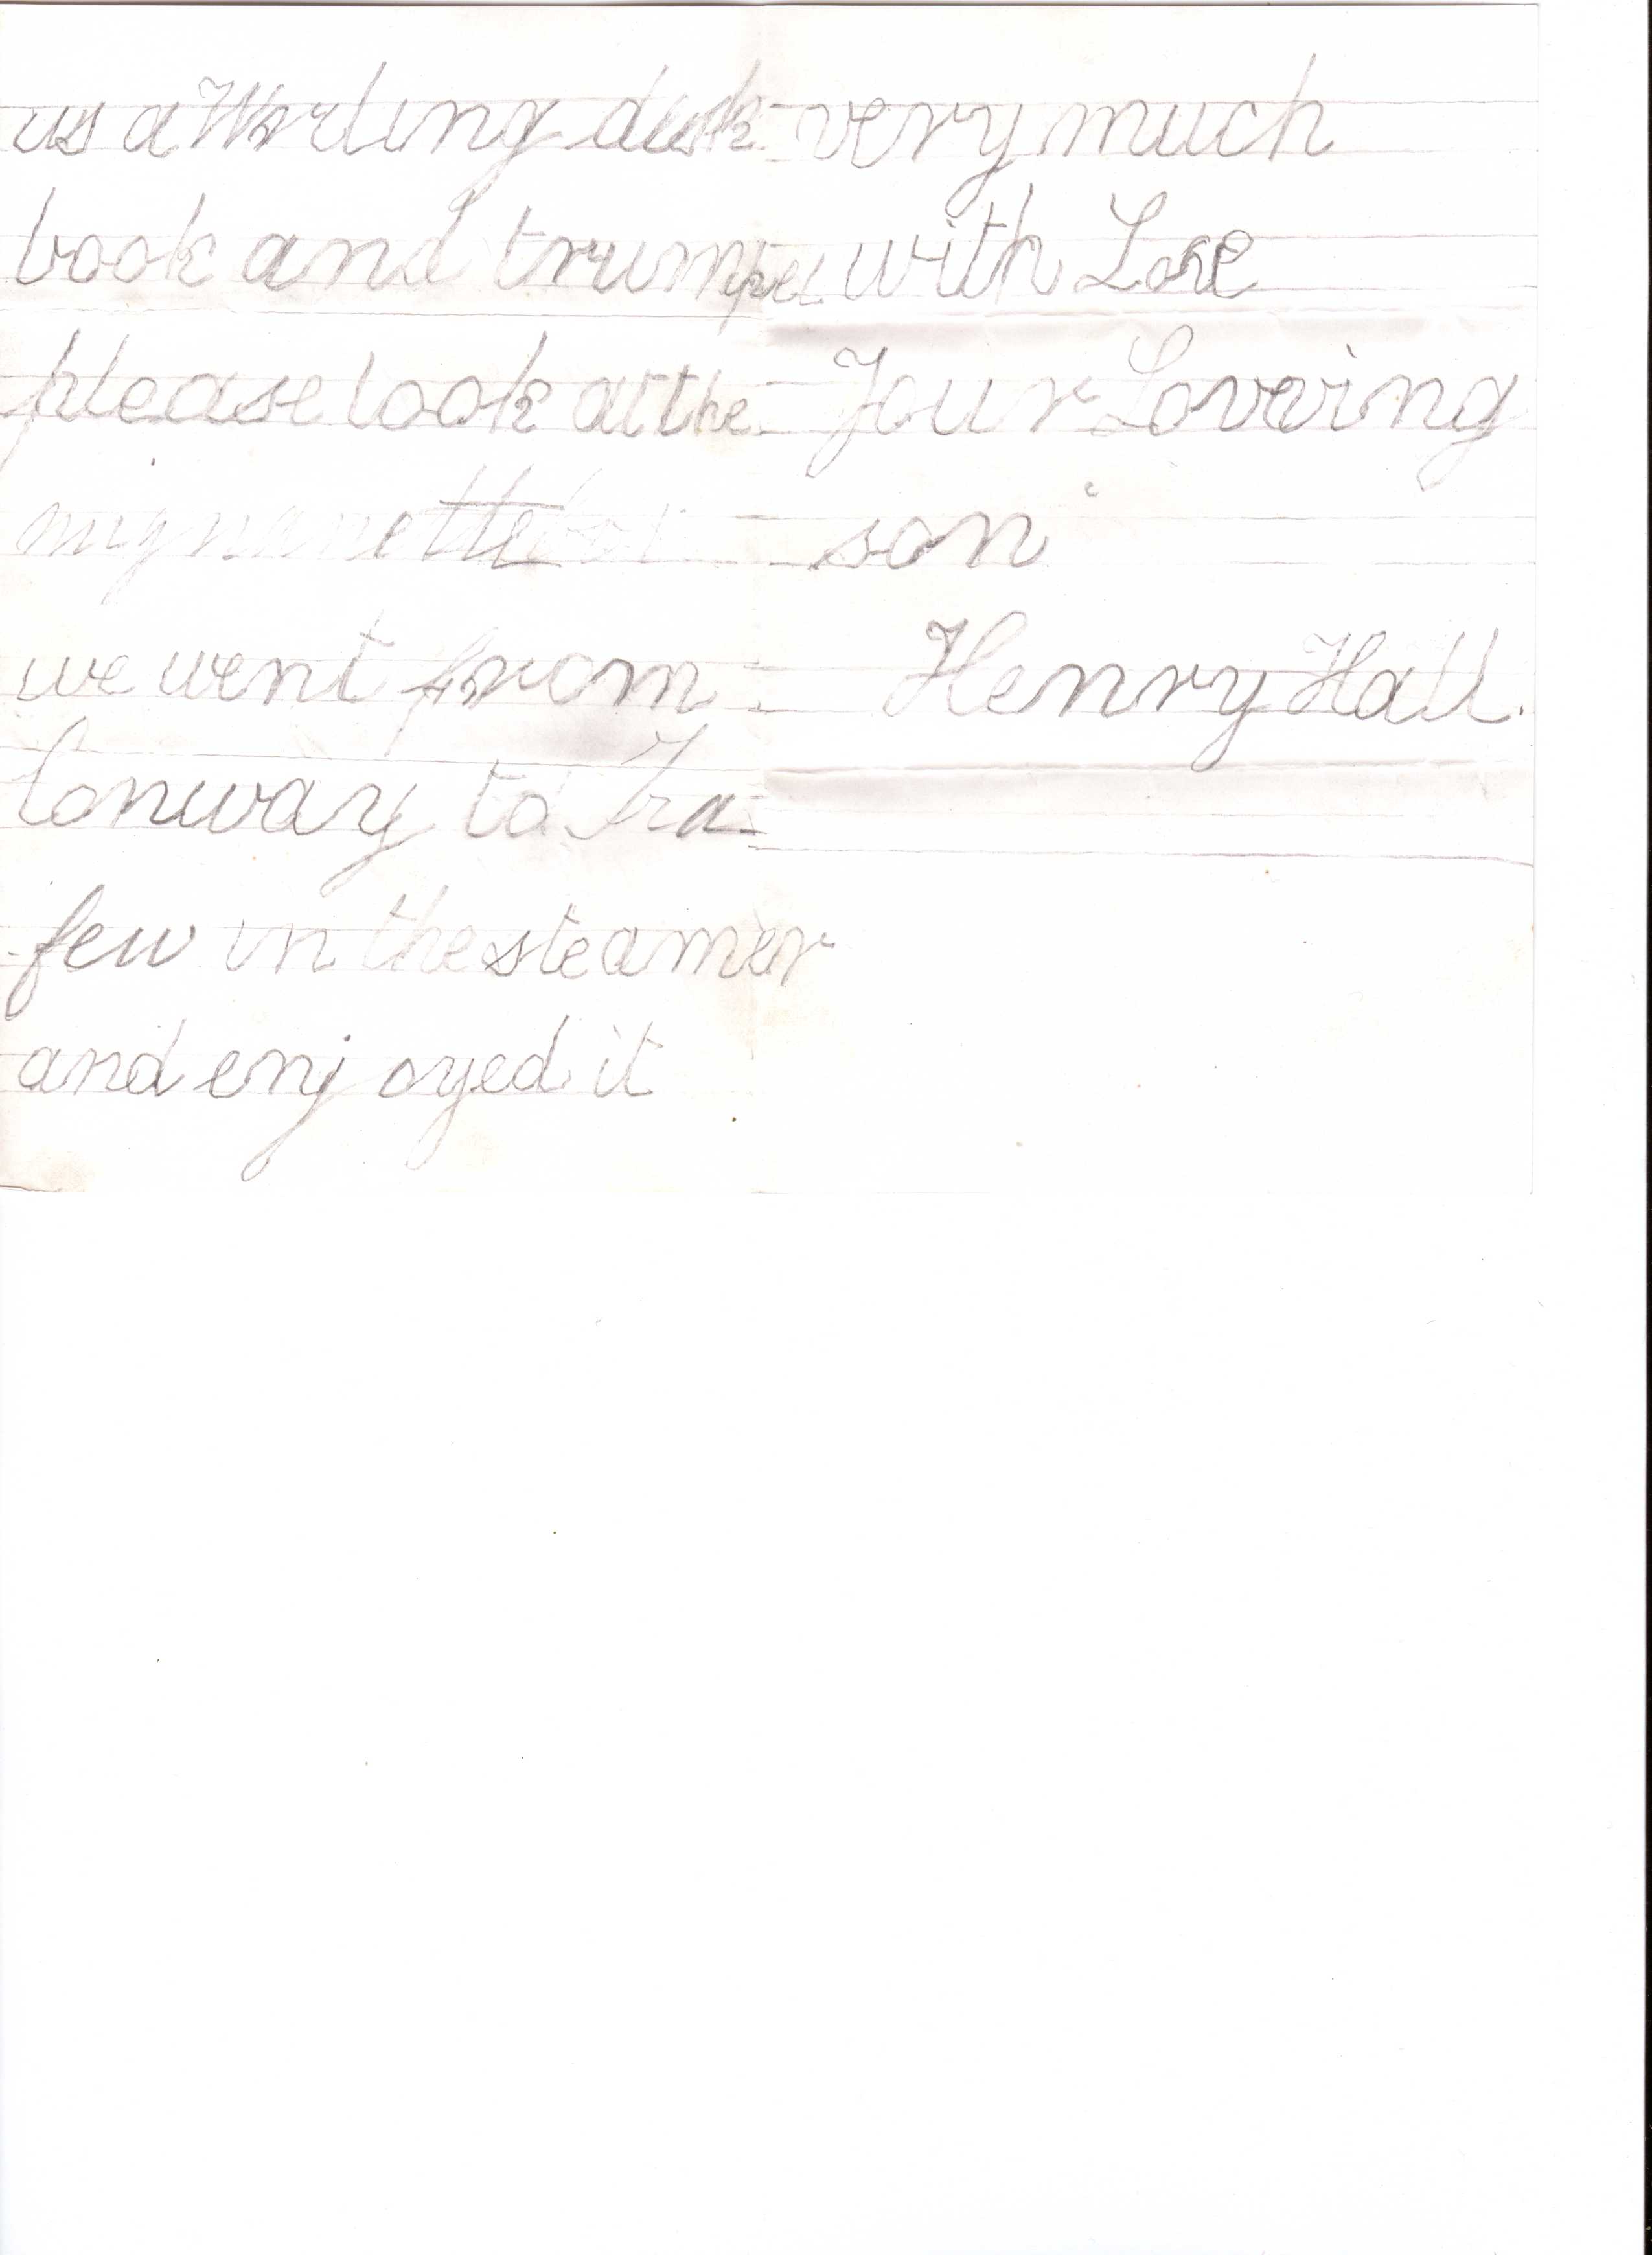 us a Writing desk
book and trumpet
please look at the
mignonette box
we went from
Conway to Tra
few in the steamer
and enj oyed it
very much
with Love
Your Loveing
son
Henry Hall.